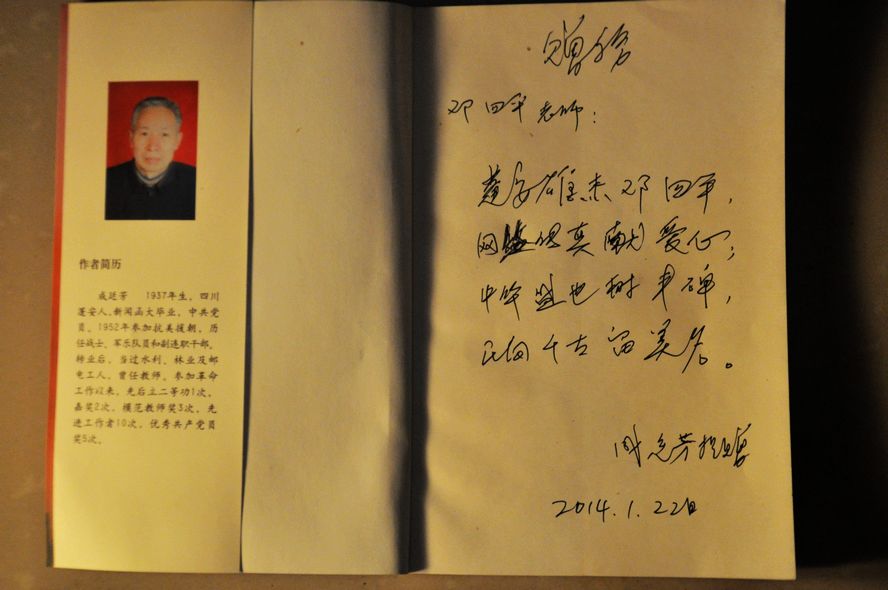 作者简历
戚廷芳 1937年生，四川
蓬安人，新闻函大毕业，中共党
员。1952年参加抗美援朝，历
任战士、军乐队员和副连职干部。
转业后，当过水利、林业及邮
电工人，曾任教师。参加革命
工作以来，先后立二等功1次，
嘉奖2次，模范教师奖3次，先
进工作者10次，优秀共产党员
奖5次。
赠
邓四平老师：
雄杰邓四平，
网 真献爱心；
中华 树丰碑，
千古留美名。
芳 赠
2014.1.22日